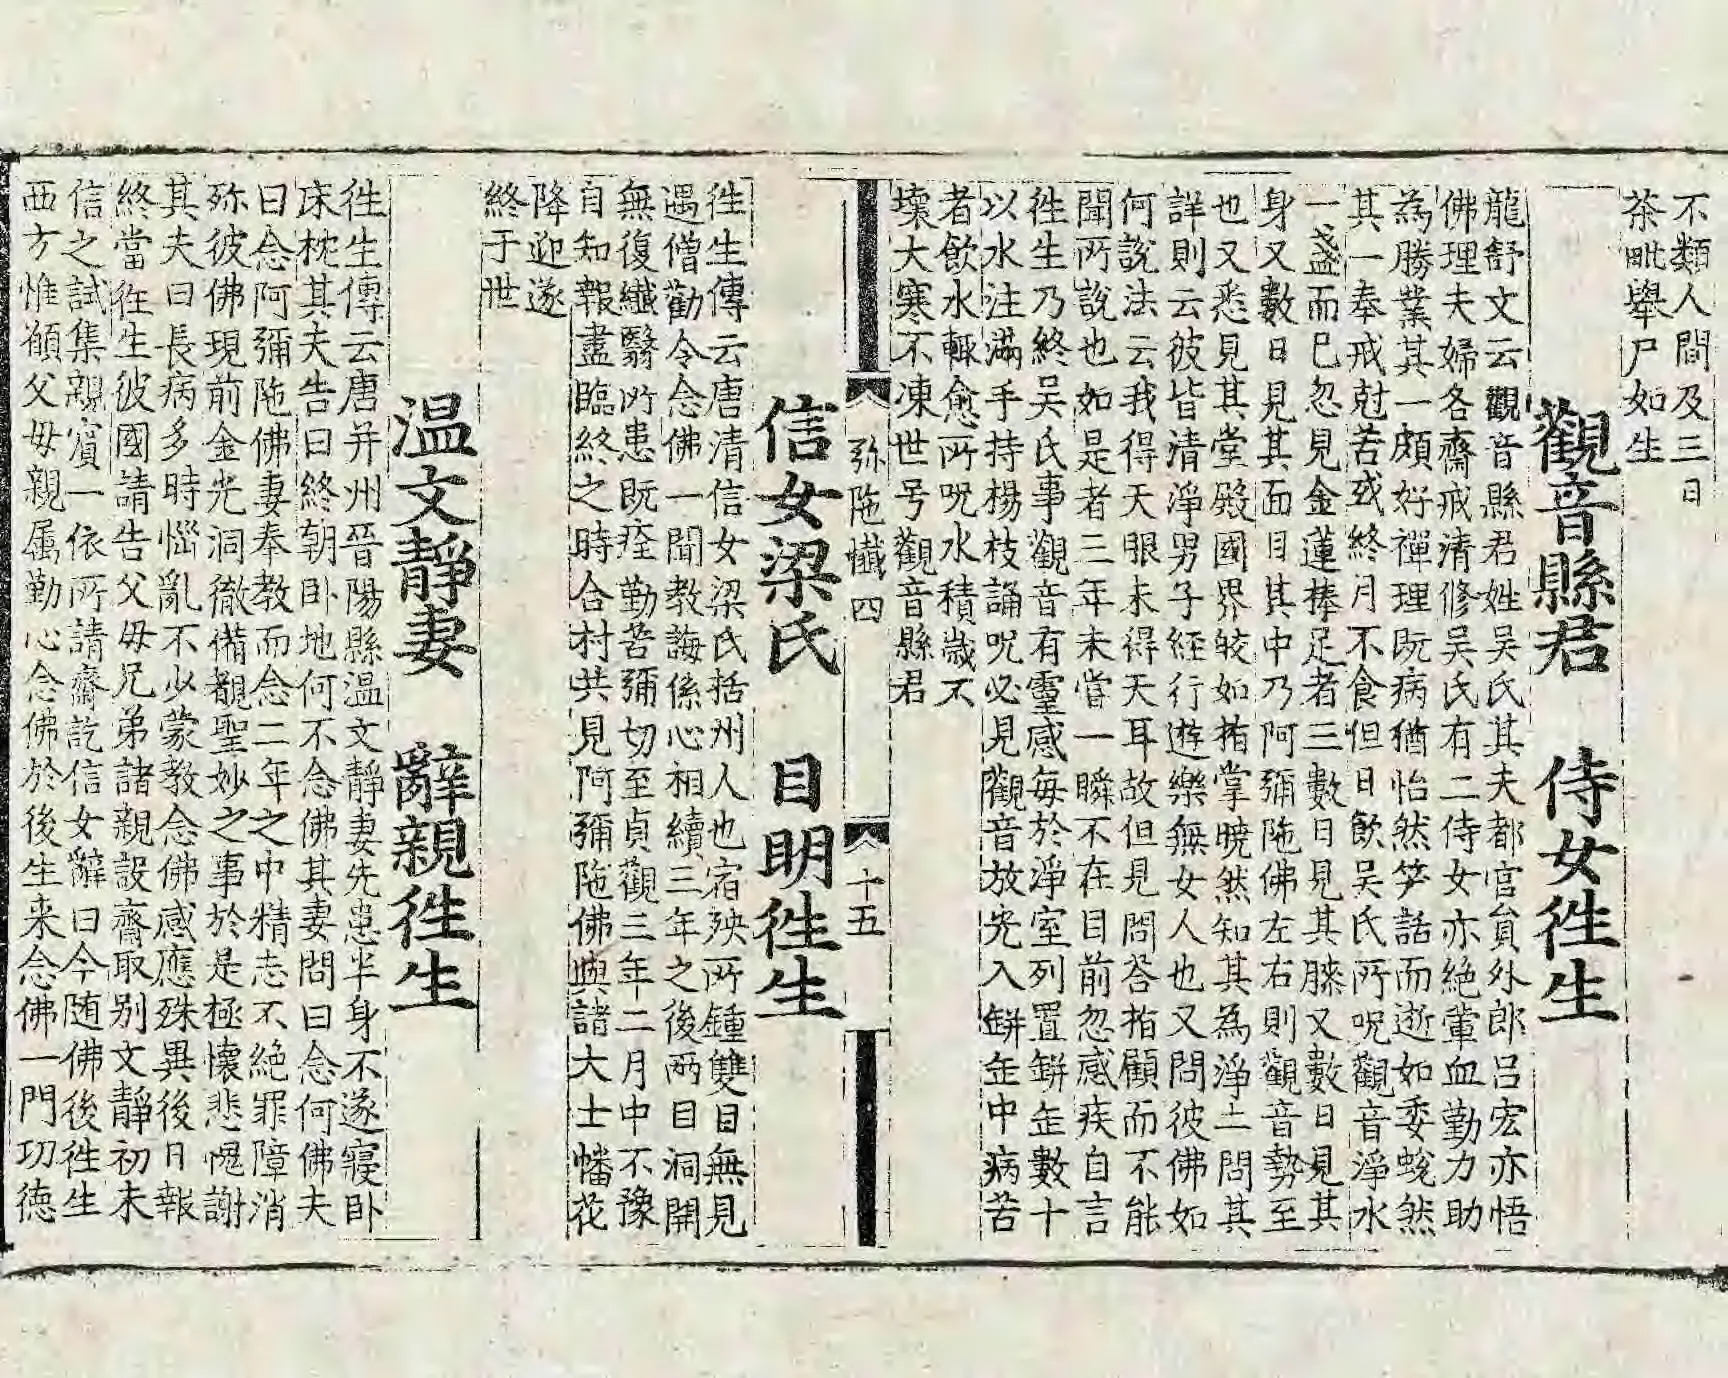 不類人間及三日
茶毗舉尸如生
觀音縣君　侍女徃生
龍舒文云觀音縣君姓吳氏其夫都官負外郎呂宏亦悟
佛理夫婦各齋戒清修吳氏有二侍女亦絕葷血勤力助
為勝業其一頗好禪理既病猶怡然笑話而逝如委蛻然
其一奉戒尅苦或終月不食但日飲吳氏所呪觀音淨水
一盞而已忽見金蓮捧足者三數日見其膝又數日見其
身又數日見其面目其中乃阿彌陁佛左右則觀音勢至
也又悉見其堂殿國界皎如指掌曉然知其為淨土問其
詳則云彼皆清淨男子經行遊樂無女人也又問彼佛如
何說法云我得天眼未得天耳故但見問荅指顧而不能
聞所說也如是者三年未嘗一瞬不在目前忽感疾自言
徃生乃終吳氏事觀音有靈感每於淨室列置缾缶數十
以水注滿手持楊枝誦呪必見觀音放光入缾缶中病苦
者飲水輙愈所呪水積歲不
壞大寒不凍世号觀音縣君
弥陁懺四　十五
信女梁氏　目明徃生
徃生傳云唐清信女梁氏括州人也宿殃所鍾雙目無見
遇僧勸令念佛一聞教誨係心相續三年之後兩目洞開
無復纖翳所患既痊勤苦彌切至貞觀三年二月中不豫
自知報盡臨終之時合村共見阿彌陁佛與諸大士幡花
降迎遂
終于世
温文靜妻　辭親徃生
徃生傳云唐并州晉陽縣温文靜妻先患半身不遂寢卧
床枕其夫告曰終朝卧地何不念佛其妻問曰念何佛夫
曰念阿彌陁佛妻奉教而念二年之中精志不絕罪障消
殄彼佛現前金光洞徹備覩聖妙之事於是極懷悲愧謝
其夫曰長病多時惱亂不少蒙教念佛感應殊異後日報
終當徃生彼國請告父母兄弟諸親設齋取别文靜初未
信之試集親賓一依所請齋訖信女辭曰今随佛後徃生
西方惟願父母親属勤心念佛於後生来念佛一門功德